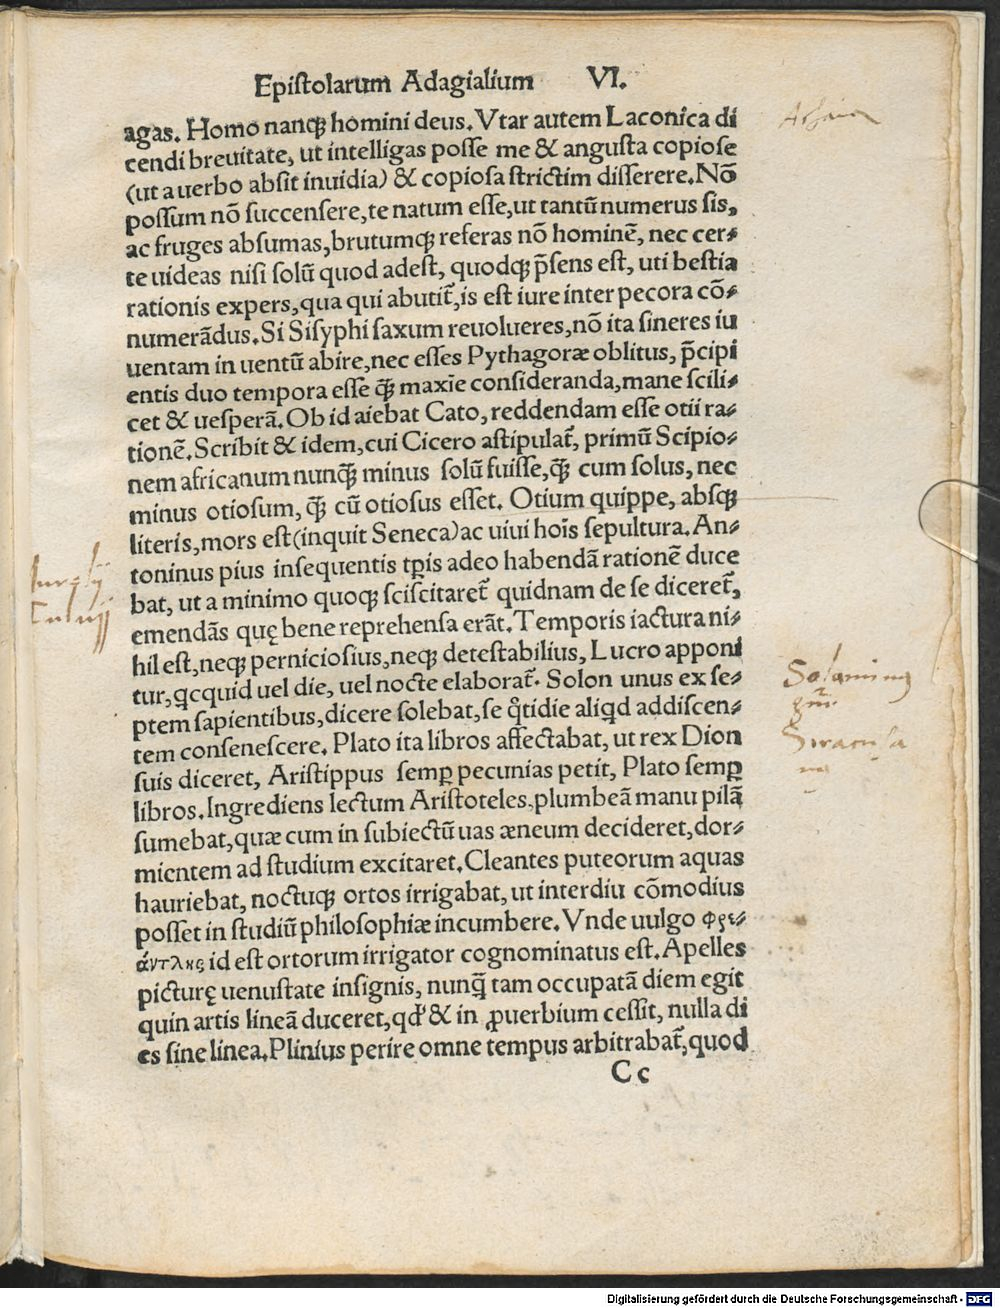 Epistolarum Adagialium VI.
agas. Homo nanq̃ homini deus. Vtar autem Laconica di
cendi breuitate, ut intelligas posse me & angusta copiose
(ut a uerbo absit inuidia) & copiosa strictim disserere. Nõ
possum nõ succensere, te natum esse, ut tantũ numerus sis,
ac fruges absumas, brutumqꝫ referas nõ hominẽ, nec cer⸗
te uideas nisi solũ quod adest, quodqꝫ p̃sens est, uti bestia
rationis expers, qua qui abutit̃, is est iure inter pecora cõ⸗
numerãdus. Si Sisyphi saxum reuolueres, nõ ita sineres iu
uentam in uentũ abire, nec esses Pythagoræ oblitus, p̃cipi
entis duo tempora esse q̃ꝫ maxĩe consideranda, mane scili⸗
cet & uesperã. Ob id aiebat Cato, reddendam esse otii ra⸗
tionẽ. Scribit & idem, cui Cicero astipulat̃, primũ Scipio⸗
nem africanum nunq̃ꝫ minus solũ fuisse, q̃ꝫ cum solus, nec
minus otiosum, q̃ꝫ cũ otiosus esset. Otium quippe, absqꝫ
literis, mors est (inquit Seneca) ac uiui hoĩs sepultura. An⸗
toninus pius insequentis tꝑis adeo habendã rationẽ duce
bat, ut a minimo quoqꝫ sciscitaret̃ quidnam de se diceret̃,
emendãs quę bene reprehensa erãt. Temporis iactura ni⸗
hil est, neqꝫ perniciosius, neqꝫ detestabilius, Lucro apponi
tur, qcquid uel die, uel nocte elaborat̃. Solon unus ex se⸗
ptem sapientibus, dicere solebat, se q̃tidie aliqd addiscen⸗
tem consenescere. Plato ita libros affectabat, ut rex Dion
suis diceret, Aristippus semꝑ pecunias petit, Plato semꝑ
libros. Ingrediens lectum Aristoteles, plumbeã manu pilã
sumebat, quæ cum in subiectũ uas æneum decideret, dor⸗
mientem ad studium excitaret. Cleantes puteorum aquas
hauriebat, noctuqꝫ ortos irrigabat, ut interdiu cõmodius
posset in studiũ philosophiæ incumbere. Vnde uulgo φρε⸗
άντλης id est ortorum irrigator cognominatus est. Apelles
picturę uenustate insignis, nunq̃ tam occupatã diem egit
quin artis lineã duceret, qd' & in ꝓuerbium cessit, nulla di
es sine linea. Plinius perire omne tempus arbitrabat̃, quod
Cc
Digitalisierung gefördert durch die Deutsche Forschungsgemeinschaft - DFG